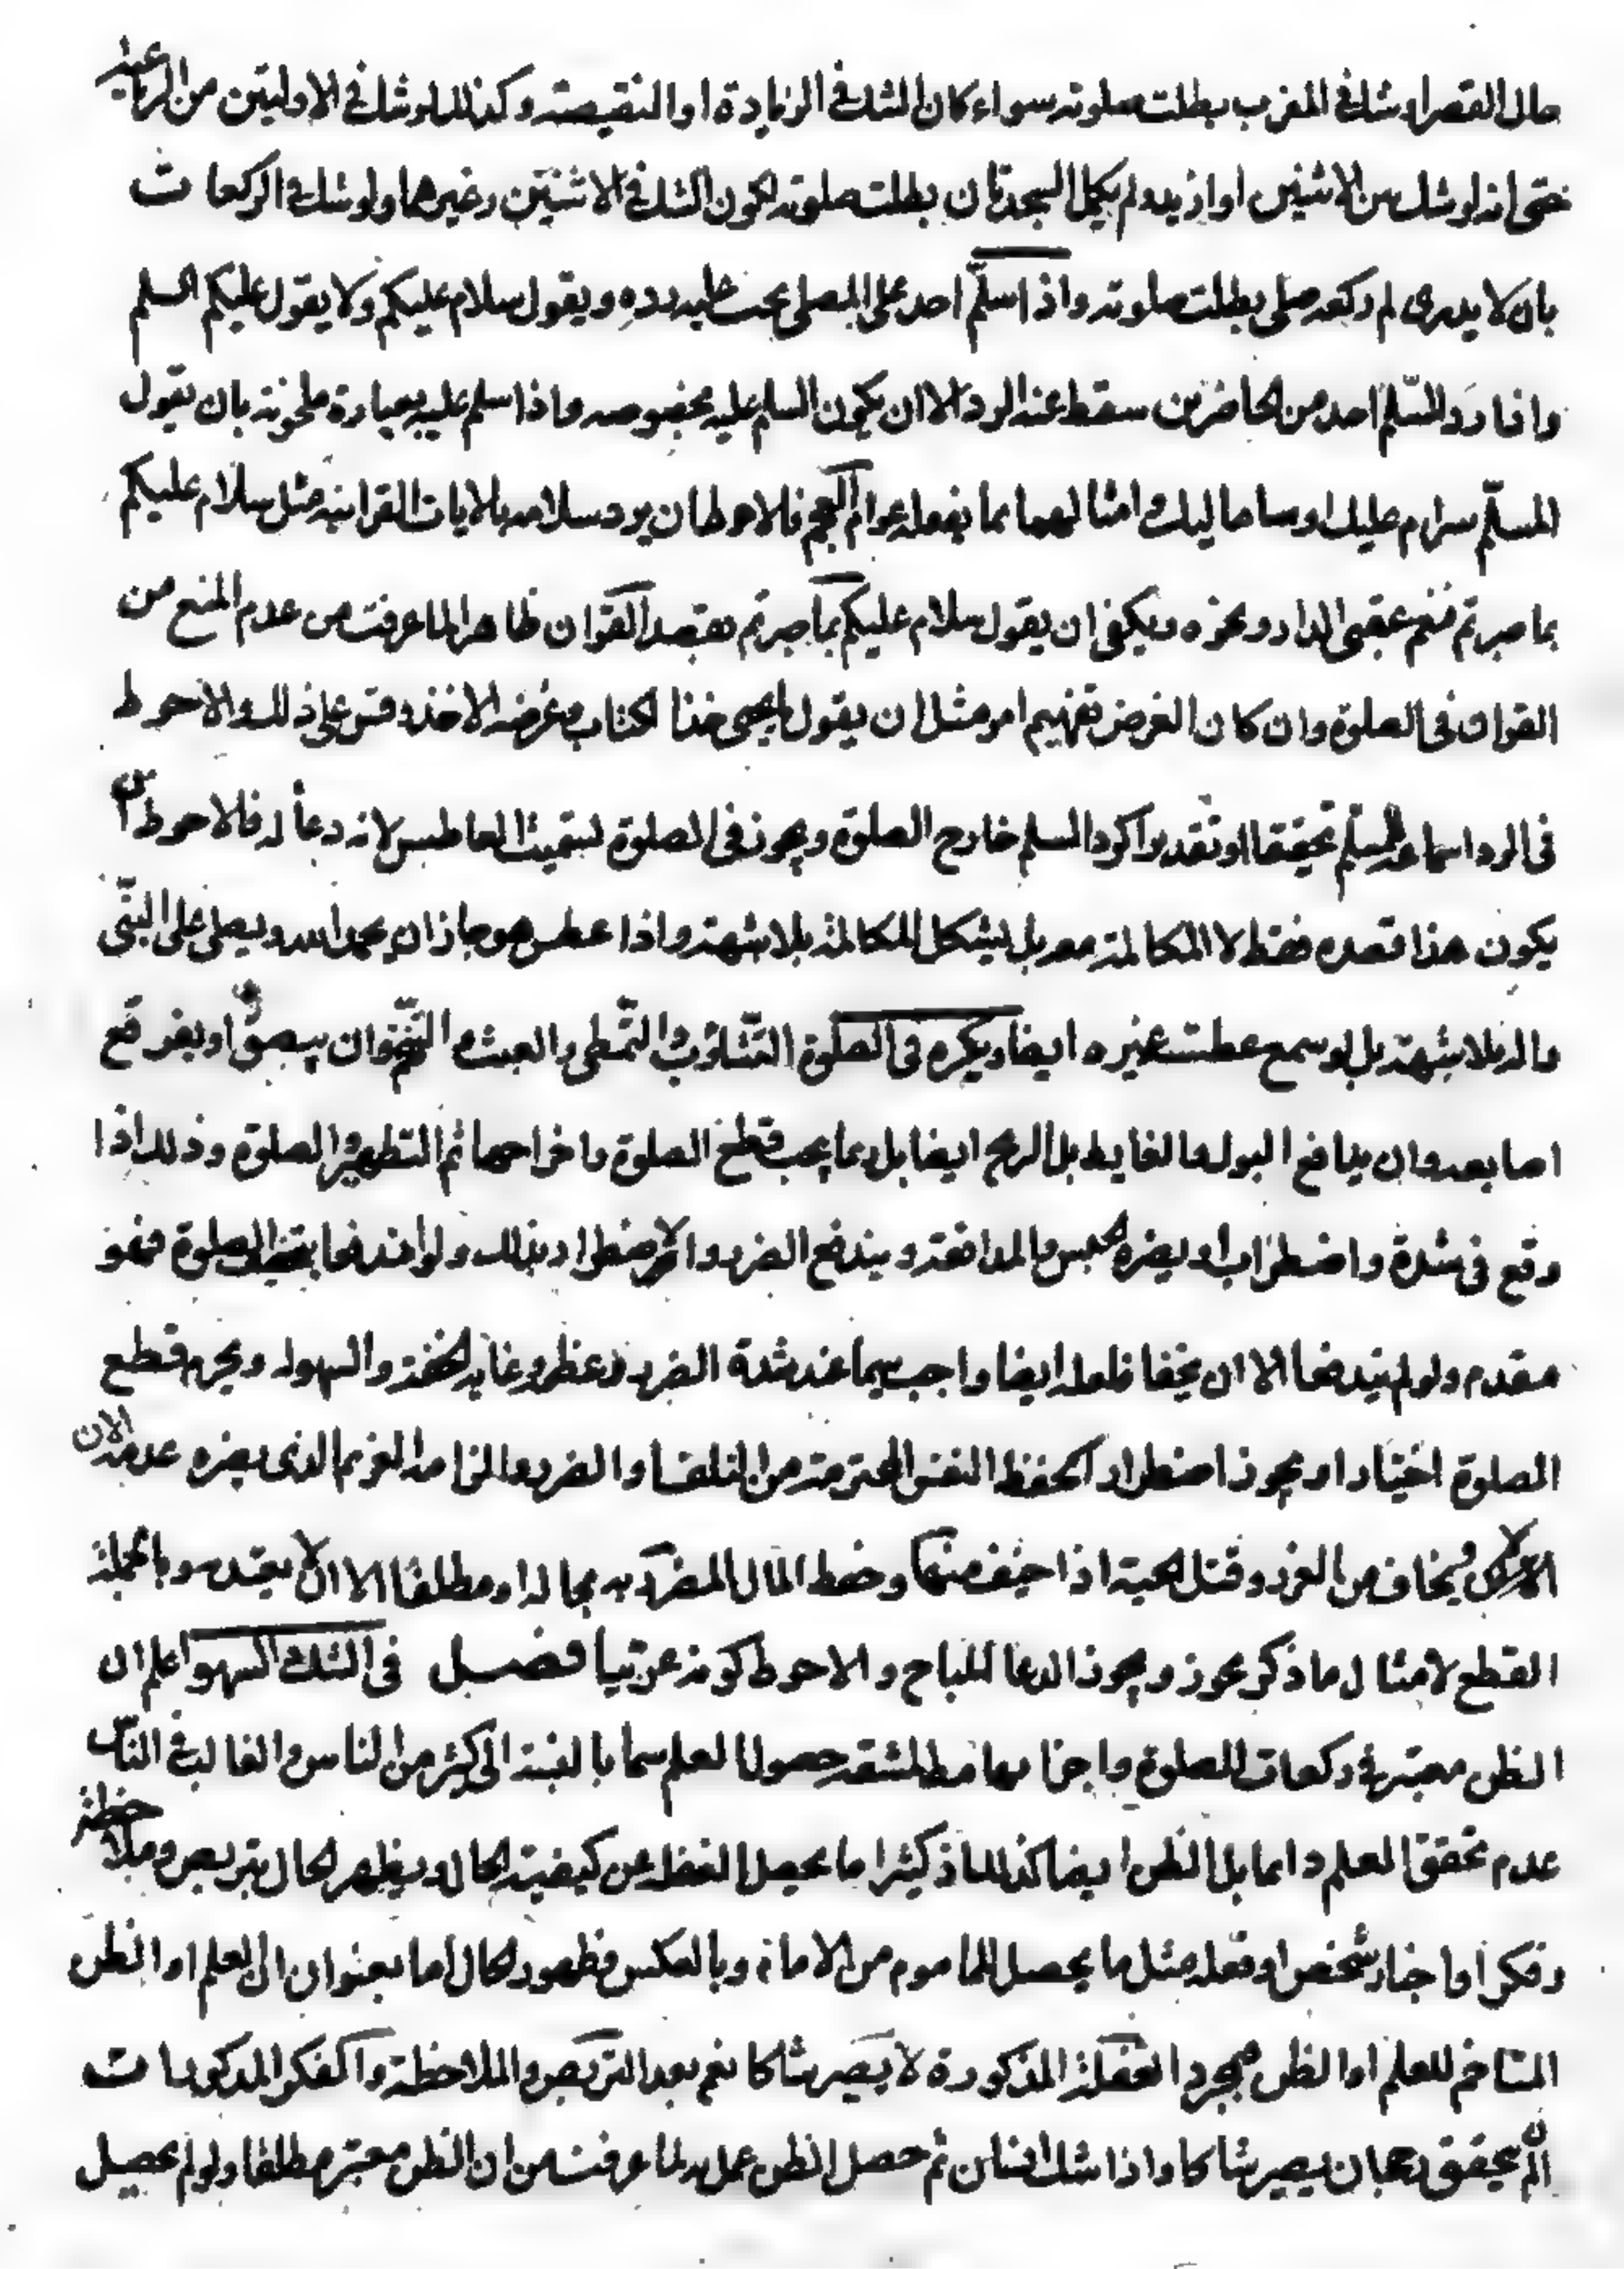 حال القصر او شك في المغرب بطلت صلوته سواء كان الشك في الزيادة او النقيصة وكذلك لو شك في الاوليتين من الرباعية
حتى انه لو شك بين الاثنين او ازيد ولم يكمل السجدتان بطلت صلوته لكون الشك في الاثنتين وغيرها ولو شك في الركعات
بان لا يدرى لم ركعه صلى بطلت صلوته واذا سلّم احد على المصلى يجب عليه رده ويقول سلام عليكم ولا يقول عليكم السلم
واذا ردّ المسّلم احد من الحاضرين سقط عنه الرد الا ان يكون السلم عليه بخصوصه واذا سلم عليه بعبارة ملحونة بان يقول
المسلّم سرام عليك او ساما ليك وامثالهما مما يفعله عوام العجم فالاحوط ان يرد سلامه بالايات القرانية مثل سلام عليكم
بما صبرتم فنعم عقبى الدار ونحوه ويكفي ان يقول سلام عليكم بما صبرتم بقصد القران ظاهرا لما عرفت من عدم المنع من
القران فى الصلوة وان كان الغرض تفهيم امر مثل ان يقول يا يحيى خذ الكتاب وغرضه الاخذ وقس على ذلك والاحوط
فى الرد اسماعه المسلّم تحقيقا او تقديرا كرد السلم خارج الصلوة ويجوز فى الصلوة تسميت العاطس لانه دعأ له فالاحوط ان
يكون هذا قصده فقط لا المكالمة معه بل يشكل المكالمة بلا شبهة واذا عطس هو جاز ان يحمد الله ويصلى على النبّى
واله بلا شبهة بل لو سمع عطسة غيره ايضا ويكره فى الصلوة التّثاؤب والتّمطى والعبث والتنخّم وان يبصق او يفرقع
اصابعه وان يدافع البول والغايط بل الريح ايضا بل ربما يجب قطع الصلوة واخراجهما ثم التطهير والصلوة وذلك اذا
وقع فى شدة واضطراب او يضره الحبس والمدافعة ويندفع الضرر والاضطرار بذلك ولو اندفعا بتخفيف الصلوة فهو
مقدم ولو لم يندفعا الا ان يخفا فلعله ايضا واجب سيما عند شدة الضرر وعظمه وغاية الخفة والسهولة ويحرم قطع
الصلوة اختيارا ويجوز اضطرارا كحفظ النفس المحترمة من التلف او الضرر والزامه الغريم الذى يضره عدمه الان
ويخاف من الغرر وقتل الحية اذا خيف منها وحفظ المال المضر به بحاله او مطلقا الا ان يقيد وبالجملة
القطع لامثال ما ذكر يجوز ويجوز الدعا للمباح والاحوط كونه عربيا فصـل فى الشك والسهو اعلم ان
الظن معتبر في ركعات الصلوة واجزائها مط لمشقة حصول العلم سيما بالنسبة الى كثير من الناس والغالب في الناس
عدم تحقق العلم دائما بل الظن ايضا كذلك اذ كثيرا ما يحصل الغفلة عن كيفية الحال ويظهر الحال بتربص وملاحظة
وفكر او اخبار شخص او فعله مثل ما يحصل للماموم من الامام وبالعكس فظهور الحال اما بعنوان العلم او الظن
المتاخم للعلم او الظن فبمجرد الغفلة المذكورة لا يصير شاكا نعم بعد التربص والملاحظة والفكر المذكورات
ان لم يتحقق رجحان يصير شاكا واذا شك انسان ثم حصل الظن عمل به لما عرفت من ان الظن معتبر مطلقا ولو لم يحصل